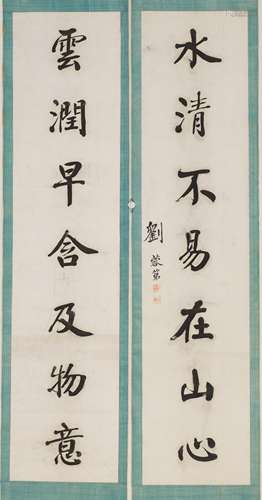 水清不易在山心
劉蓉第
雲潤早含及物意